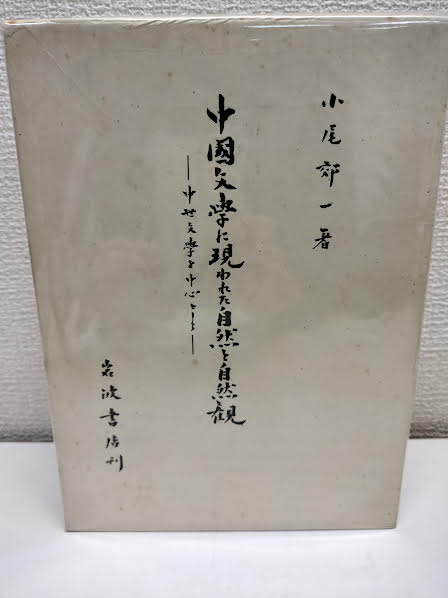 小尾郊一著
中国文學に現われた自然と自然觀
―中世文學を中心として―
岩波書店刊